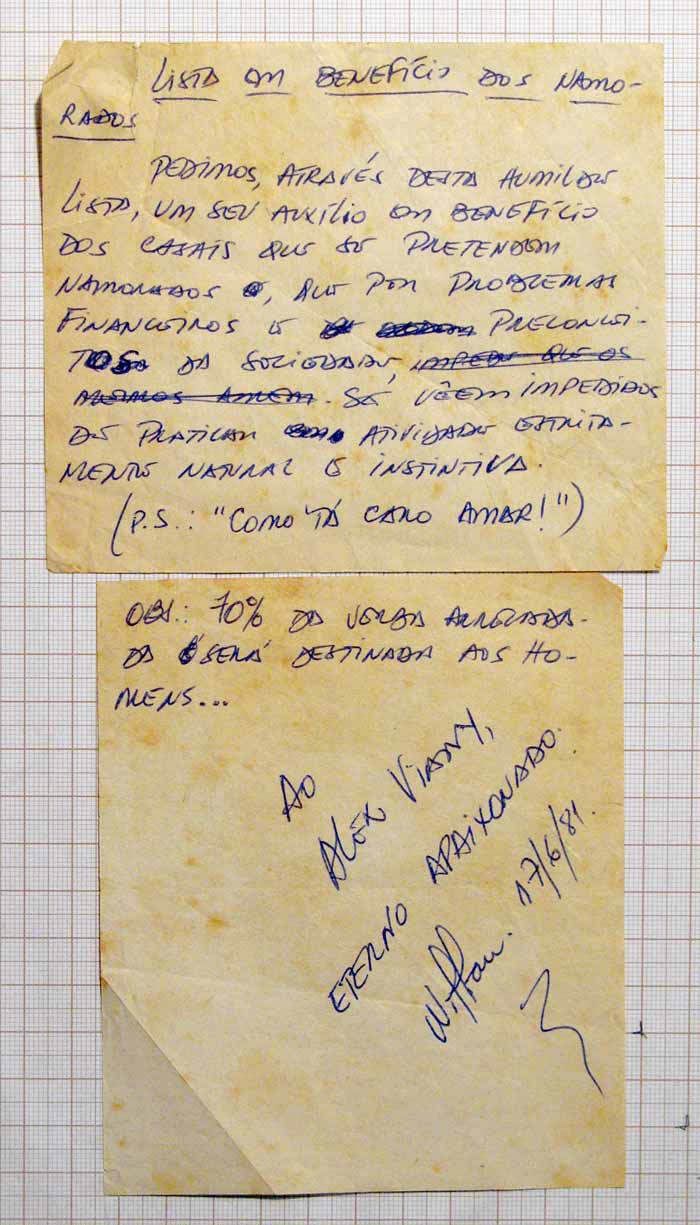 LISTA EM BENEFÍCIO DOS NAMO-
RADOS
PEDIMOS, ATRAVÉS DESTA HUMILDE
LISTA, UM SEU AUXÍLIO EM BENEFÍCIO
DOS CASAIS QUE SE PRETENDEM
NAMORADOS E, QUE POR PROBLEMAS
FINANCEIROS E PRECONCEI-
TOS DA SOCIEDADE, IMPEDE QUE OS
MESMOS AMEM. SE VÊEM IMPEDIDOS
DE PRATICAR ATIVIDADE ESTRITA-
MENTE NATURAL E INSTINTIVA.
(P.S.: "COMO 'TÁ CARO AMAR!")
OBS.: 70% DA VERBA ARRECADA-
DA SERÁ DESTINADA AOS HO-
MENS...
AO
ALEX VIANY,
ETERNO APAIXONADO.
17/6/81.